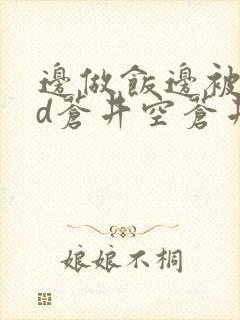 邊做飯邊被
d蒼井空蒼井
娘娘不桐